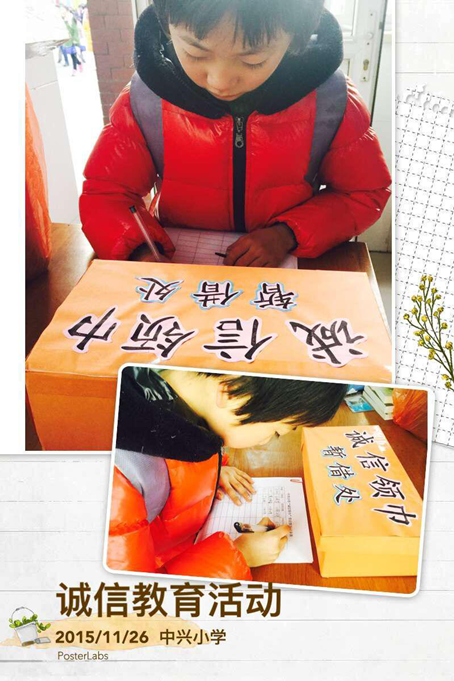 诚信领巾
暂借处
诚信领巾
暂借处
诚信教育活动
2015/11/26 中兴小学
PosterLabs